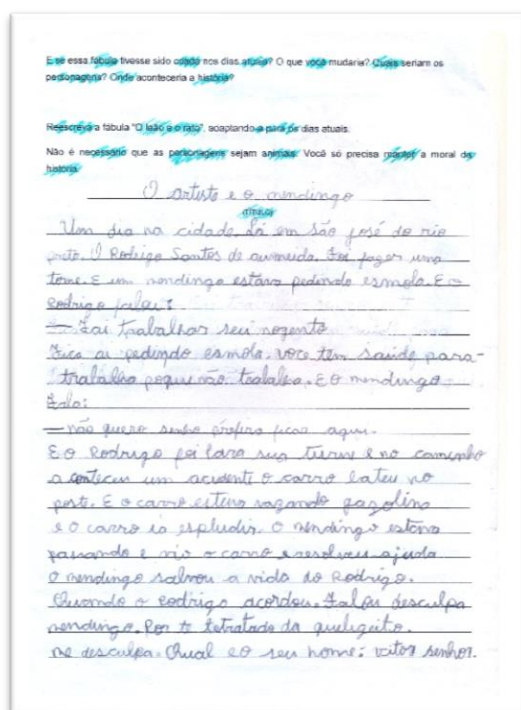 E se essa fábula tivesse sido criada nos dias atuais? O que você mudaria? Quais seriam os
personagens? Onde aconteceria a história?
Reescreva a fábula "O leão e o rato", adaptando-a para os dias atuais.
Não é necessário que as personagens sejam animais. Você só precisa manter a moral da
história.
O artista e o mendingo
(TÍTULO)
Um dia na cidade. Lá em São josé do rio
preto. O Rodrigo Santos de aumeida. Foi fazer uma
torne. E um mendingo estava pedindo esmola. E o
Rodrigo falou:
— Fai trabalhar seu nogento
Fica ai pedindo esmola. voce tem saúde para-
trabalha poque não trabalha. E o mendingo
Fala:
— não quero senho prefiro ficar aqui.
E o Rodrigo foi sua e no caminho
a conteceu um acidenti o carro bateu no
poste. E o carro estava vazando gazolina
e o carro ia espludir. O mendingo estava
passando e viu o carro e resolveu ajuda
O mendingo salvou a vida do Rodrigo.
Quando o Rodrigo acordou. Falou desculpa
mendingo. Por te tetratado da quelegeito.
me desculpa. Qual e o seu nome: vitor senhor.